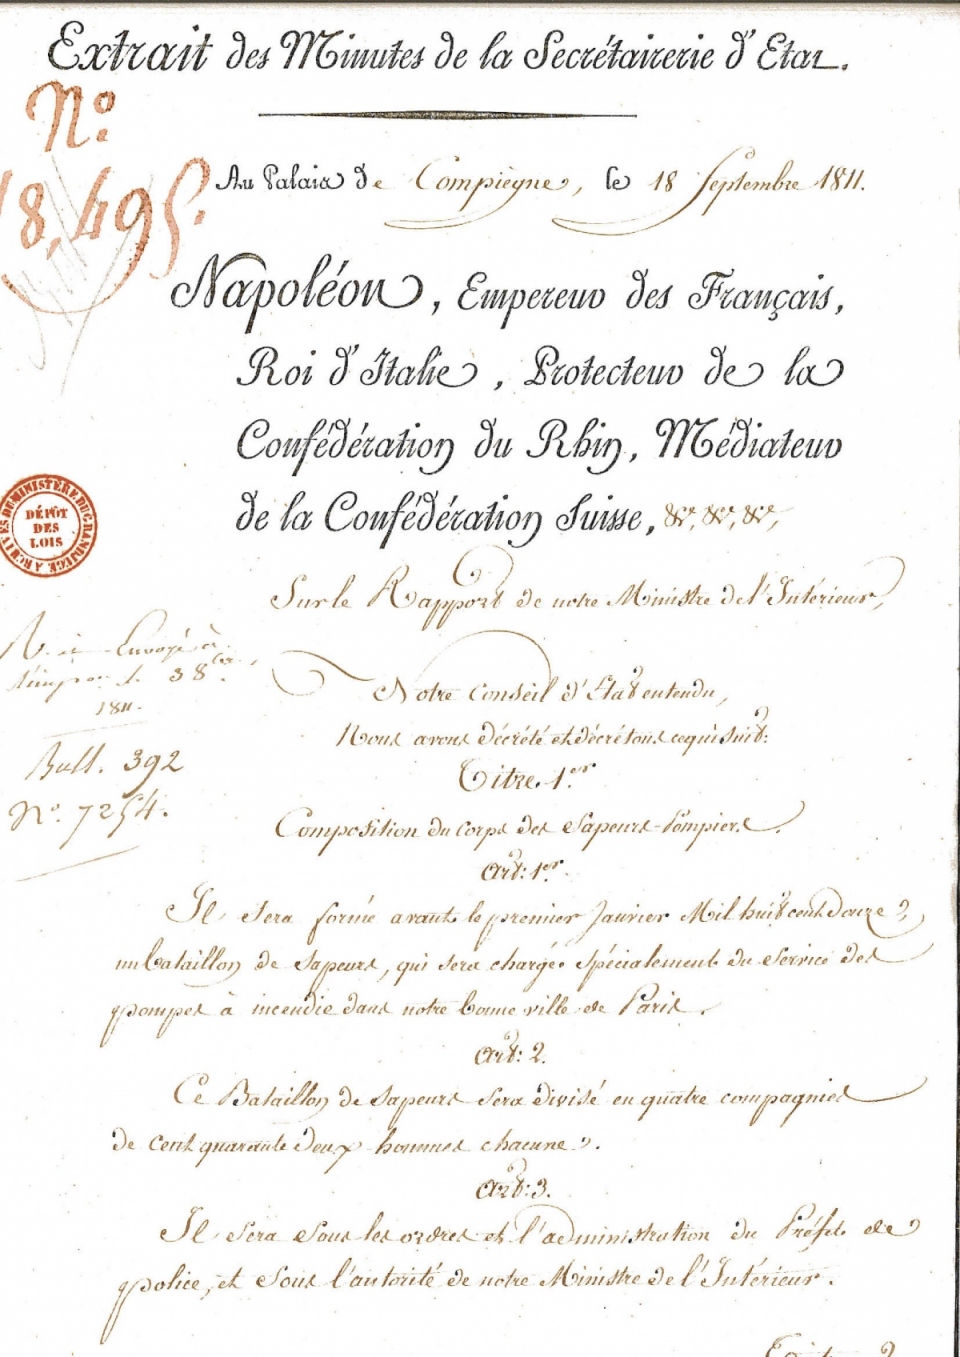 Extrait des Minutes de la Secrétairerie d'Etat.
N.º
18,495.
Au Palais de Compiègne, le 18 Septembre 1811.
Napoléon, Empereur des Français,
Roi d'Italie, Protecteur de la
Confédération du Rhin, Médiateur
de la Confédération Suisse, &c, &c, &c,
ARCHIVES DU MINISTÈRE DU GRAND JUGE
DÉPÔT
DES
LOIS
Sur le Rapport de notre Ministre de l'Intérieur,
Envoyé à
38
1811.
Notre Conseil d'Etat entendu,
Nous avons décrété et décrétons ce qui suit:
Bull. 392
N.º 7254.
Titre. 1.er
Composition du corps des Sapeurs-Pompiers.
Art: 1er.
Il sera formé avant le premier Janvier Mil huit cent douze,
un bataillon de Sapeurs, qui sera chargé spécialement du service des
pompes à incendie dans notre bonne ville de Paris.
Art: 2.
Ce Bataillon de Sapeurs sera divisé en quatre compagnies
de cent quarante deux hommes chacune.
Art: 3.
Il sera sous les ordres et l'administration du Préfet de
police, et sous l'autorité de notre Ministre de l'Intérieur.